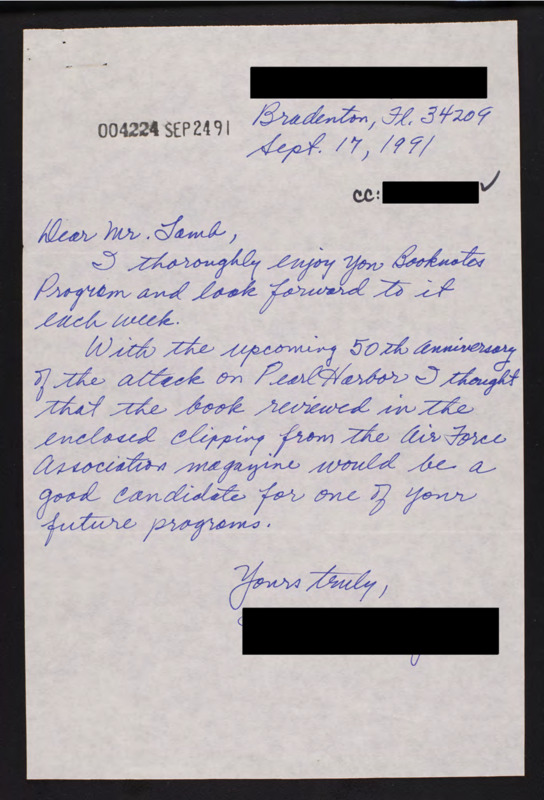 004224 SEP 24 91
Bradenton, Fl. 34209
Sept. 17, 1991
cc:
Dear Mr. Lamb,
I thoroughly enjoy your Booknotes
Program and look forward to it
each week.
With the upcoming 50th anniversary
of the attack on Pearl Harbor I thought
that the book reviewed in the
enclosed clipping from the Air Force
Association magazine would be a
good candidate for one of your
future programs.
Yours truly,